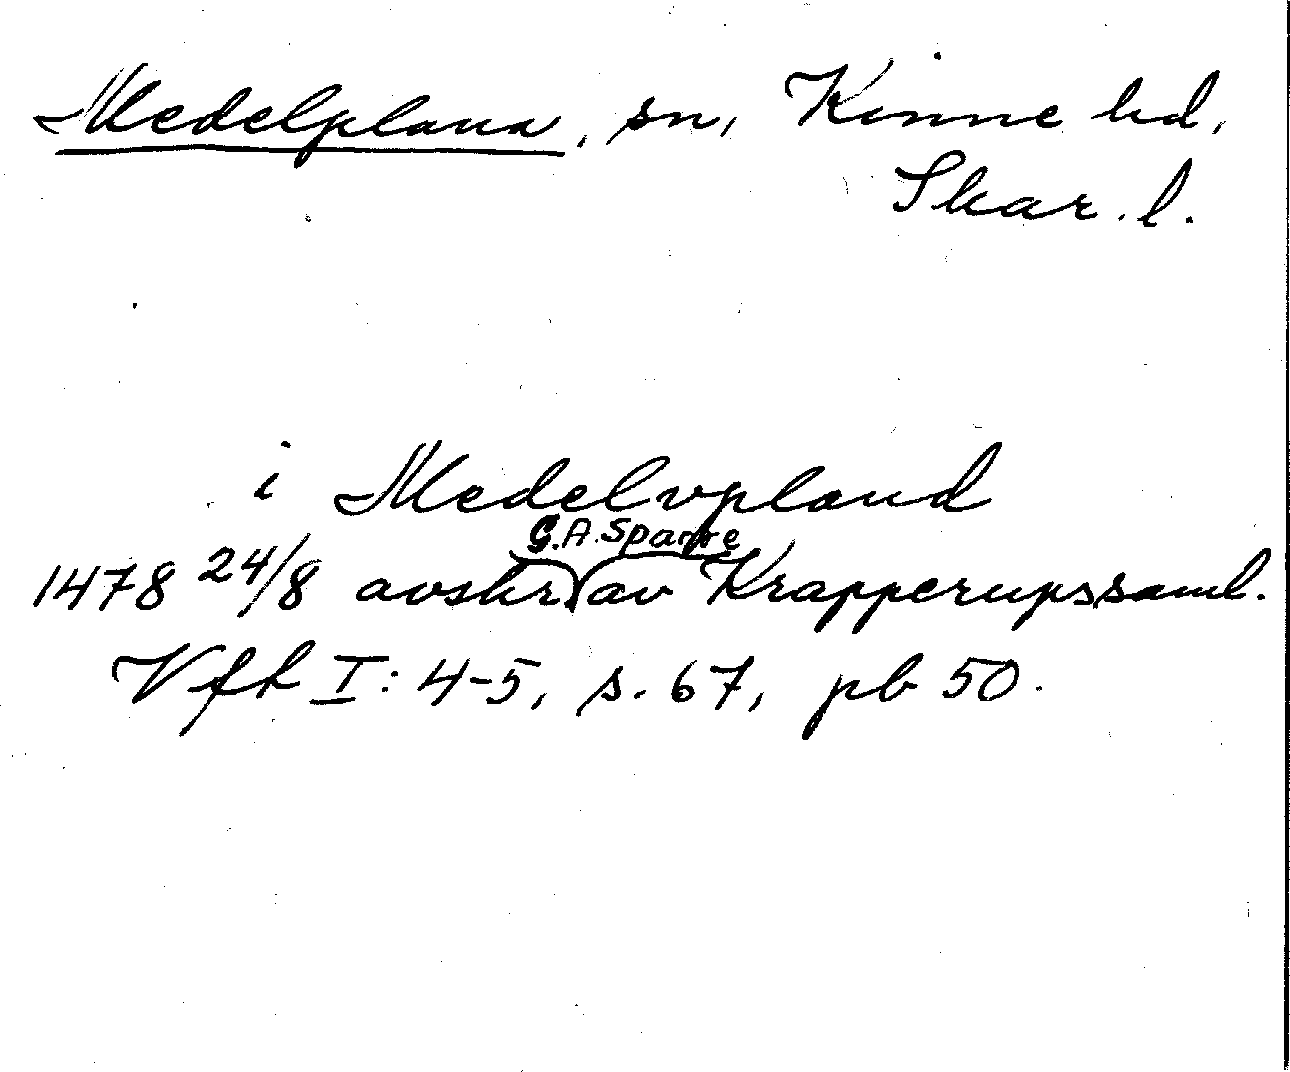 Medelplana, sn, Kinne hd,
Skar. l.
i Medelvpland
G.A. Sparre
1478 24/8 avskr. av Krapperupssaml.
Vft I: 4-5, s. 67, pb 50.